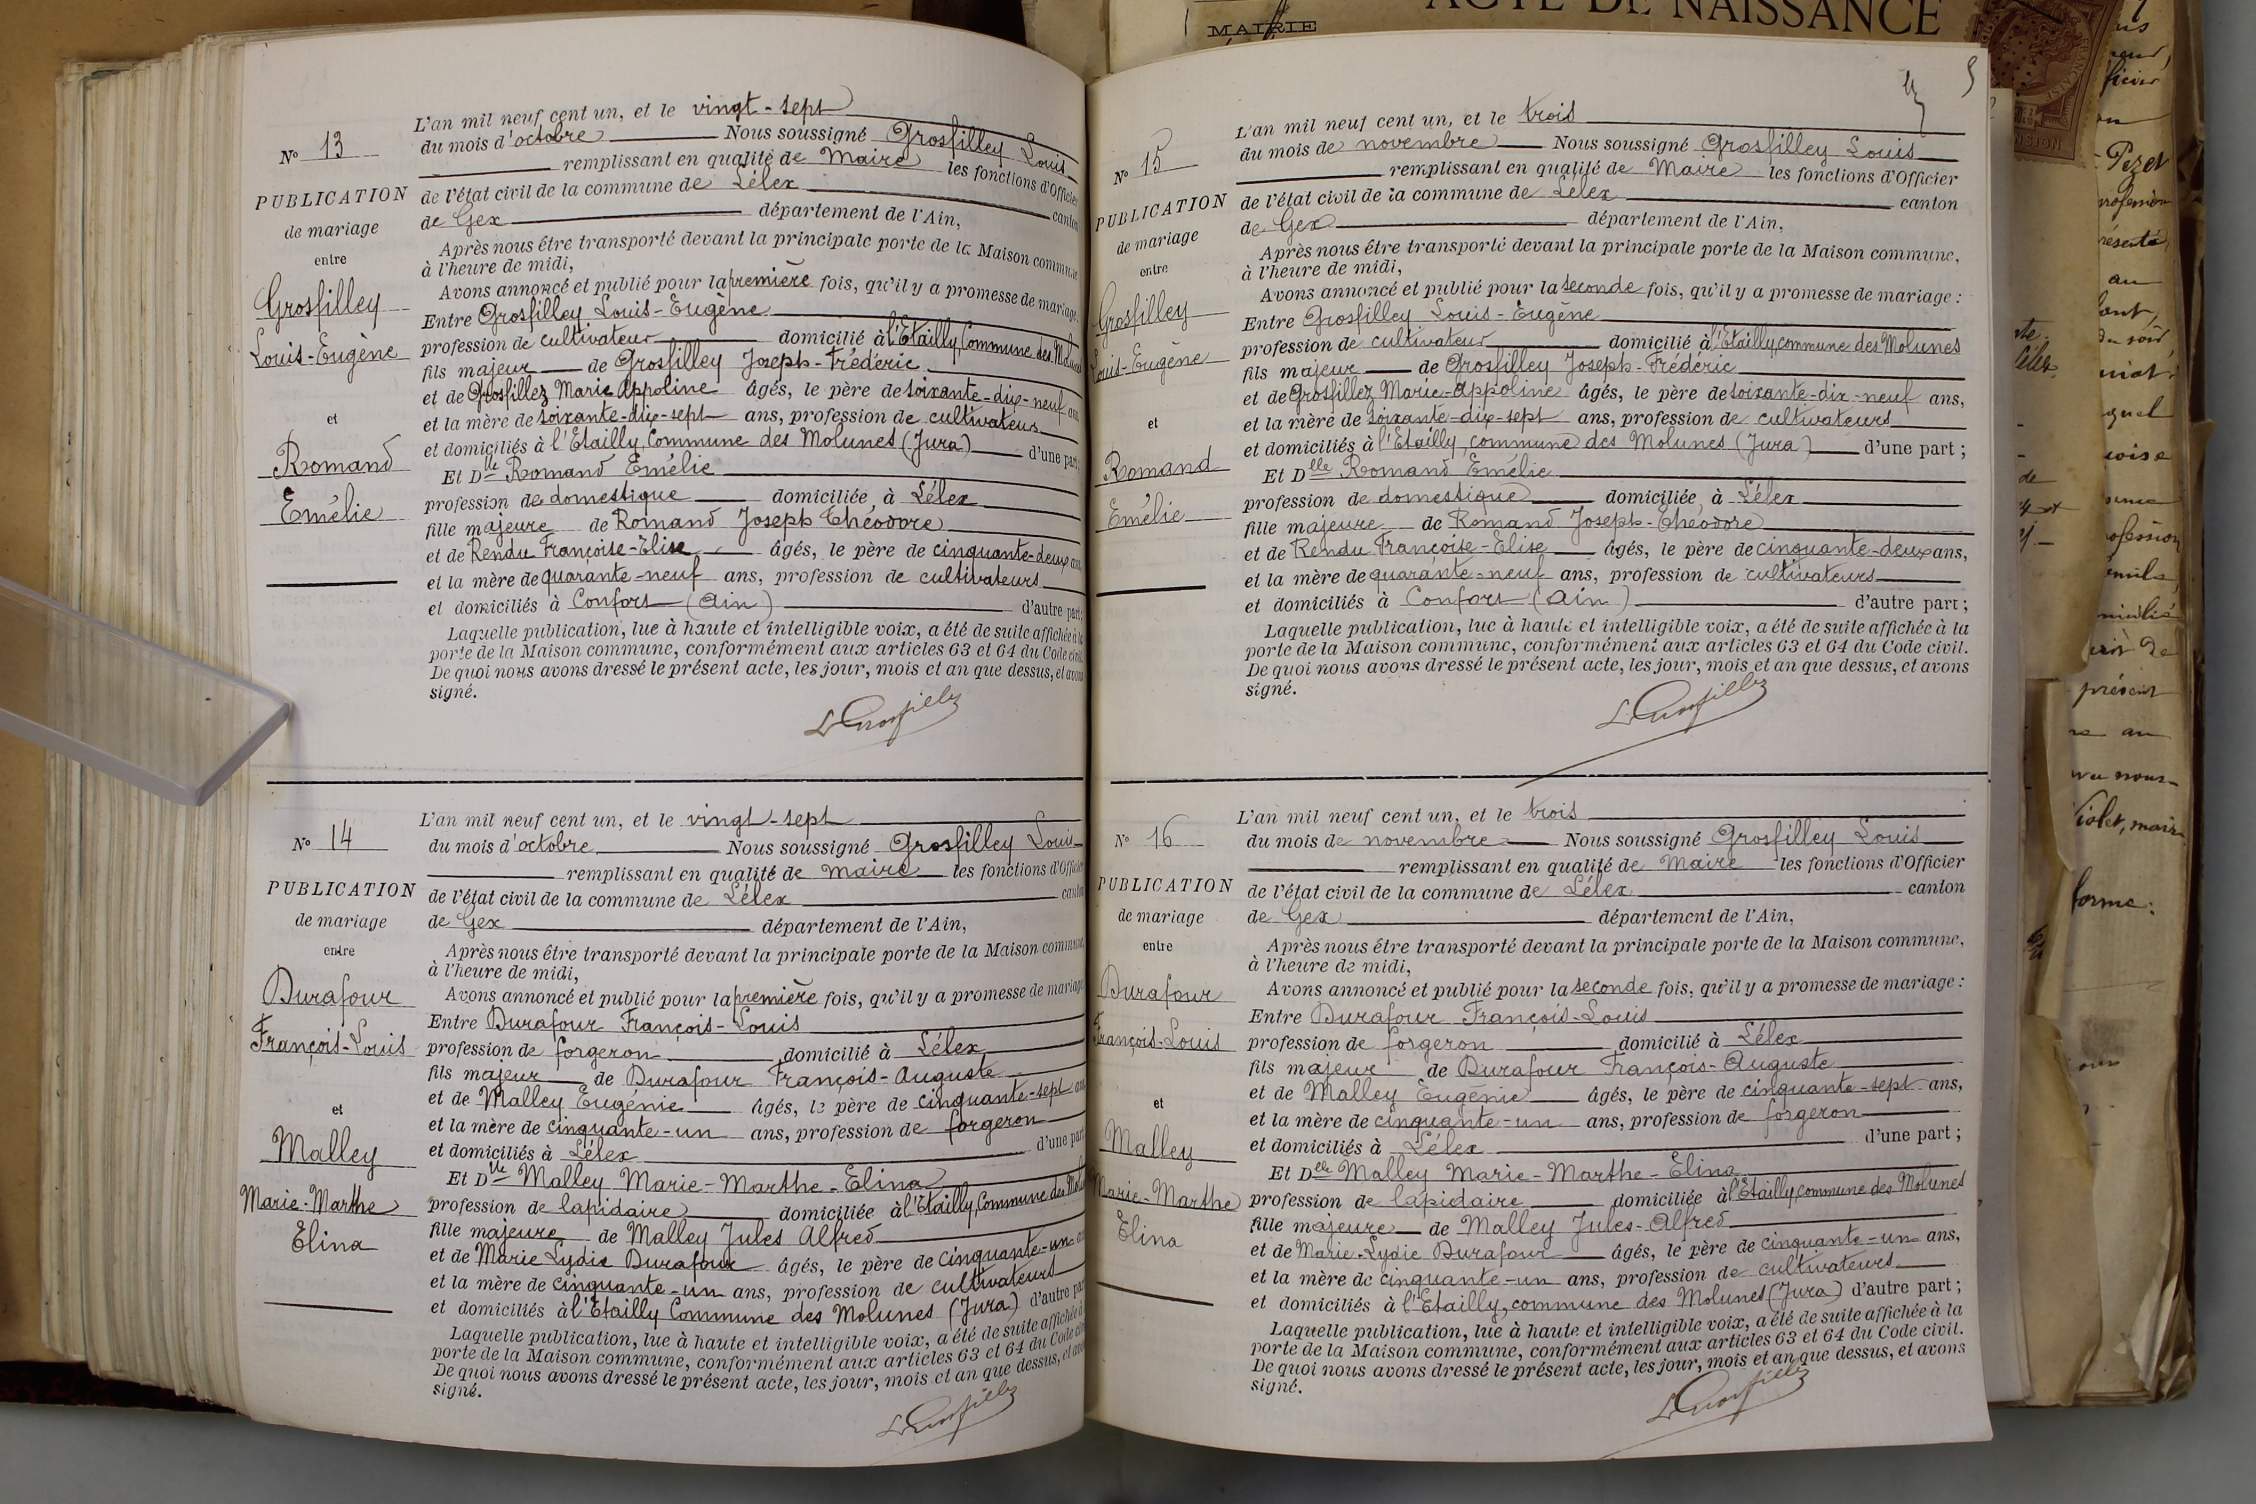 MAIRIE
ACTE DE NAISSANCE
N° 13
PUBLICATION
de mariage
entre
Grosfilley
Louis-Eugène
et
Romand
Emélie
L'an mil neuf cent un, et le vingt-sept
du mois d'octobre Nous soussigné Grosfilley Louis
remplissant en qualité de Maire les fonctions d'Officier
de l'état civil de la commune de Lélex canton
de Gex département de l'Ain,
Après nous être transporté devant la principale porte de la Maison commune
à l'heure de midi,
Avons annoncé et publié pour la première fois, qu'il y a promesse de mariage
Entre Grosfilley Louis-Eugène
profession de cultivateur domicilié à l'Etailly Commune des Molunes
fils majeur de Grosfilley Joseph-Frédéric
et de Grosfillez Marie Appoline âgés, le père de soixante-dix-neuf ans
et la mère de soixante-dix-sept ans, profession de cultivateurs
et domiciliés à l'Etailly Commune des Molunes (Jura) d'une part;
Et Dlle Romand Emélie
profession de domestique domiciliée à Lélex
fille majeure de Romand Joseph Théodore
et de Rendu Françoise-Elise âgés, le père de cinquante-deux ans
et la mère de quarante-neuf ans, profession de cultivateurs
et domiciliés à Confort (Ain) d'autre part;
Laquelle publication, lue à haute et intelligible voix, a été de suite affichée à la
porte de la Maison commune, conformément aux articles 63 et 64 du Code civil.
De quoi nous avons dressé le présent acte, les jour, mois et an que dessus, et avons
signé.
L. Grosfilley
N° 14
PUBLICATION
de mariage
entre
Durafour
François-Louis
et
Malley
Marie-Marthe
Elina
L'an mil neuf cent un, et le vingt-sept
du mois d'octobre Nous soussigné Grosfilley Louis
remplissant en qualité de maire les fonctions d'Officier
de l'état civil de la commune de Lélex canton
de Gex département de l'Ain,
Après nous être transporté devant la principale porte de la Maison commune,
à l'heure de midi,
Avons annoncé et publié pour la première fois, qu'il y a promesse de mariage
Entre Durafour François-Louis
profession de forgeron domicilié à Lélex
fils majeur de Durafour François-Auguste
et de Malley Eugénie âgés, le père de cinquante-sept ans
et la mère de cinquante-un ans, profession de forgeron
et domiciliés à Lélex d'une part
Et Dlle Malley Marie-Marthe-Elina
profession de lapidaire domiciliée à l'Etailly Commune des Molunes
fille majeure de Malley Jules Alfred
et de Marie Lydie Durafour âgés, le père de cinquante-un ans
et la mère de cinquante-un ans, profession de cultivateurs
et domiciliés à l'Etailly Commune des Molunes (Jura) d'autre part
Laquelle publication, lue à haute et intelligible voix, a été de suite affichée à la
porte de la Maison commune, conformément aux articles 63 et 64 du Code civil
De quoi nous avons dressé le présent acte, les jour, mois et an que dessus, et avons
signé.
L. Grosfilley
N° 15
PUBLICATION
de mariage
entre
Grosfilley
Louis-Eugène
et
Romand
Emélie
L'an mil neuf cent un, et le trois
du mois de novembre Nous soussigné Grosfilley Louis
remplissant en qualité de Maire les fonctions d'Officier
de l'état civil de la commune de Lélex canton
de Gex département de l'Ain,
Après nous être transporté devant la principale porte de la Maison commune,
à l'heure de midi,
Avons annoncé et publié pour la seconde fois, qu'il y a promesse de mariage :
Entre Grosfilley Louis-Eugène
profession de cultivateur domicilié à l'Etailly, commune des Molunes
fils majeur de Grosfilley Joseph-Frédéric
et de Grosfillez Marie-Appoline âgés, le père de soixante-dix-neuf ans,
et la mère de soixante-dix-sept ans, profession de cultivateurs
et domiciliés à l'Etailly, commune des Molunes (Jura) d'une part ;
Et Dlle Romand Emélie
profession de domestique domiciliée à Lélex
fille majeure de Romand Joseph-Théodore
et de Rendu Françoise-Elise âgés, le père de cinquante-deux ans,
et la mère de quarante-neuf ans, profession de cultivateurs
et domiciliés à Confort (Ain) d'autre part ;
Laquelle publication, lue à haute et intelligible voix, a été de suite affichée à la
porte de la Maison commune, conformément aux articles 63 et 64 du Code civil.
De quoi nous avons dressé le présent acte, les jour, mois et an que dessus, et avons
signé.
L. Grosfilley
N° 16
PUBLICATION
de mariage
entre
Durafour
François-Louis
et
Malley
Marie-Marthe
Elina
L'an mil neuf cent un, et le trois
du mois de novembre Nous soussigné Grosfilley Louis
remplissant en qualité de Maire les fonctions d'Officier
de l'état civil de la commune de Lélex canton
de Gex département de l'Ain,
Après nous être transporté devant la principale porte de la Maison commune,
à l'heure de midi,
Avons annoncé et publié pour la seconde fois, qu'il y a promesse de mariage :
Entre Durafour François-Louis
profession de forgeron domicilié à Lélex
fils majeur de Durafour François-Auguste
et de Malley Eugénie âgés, le père de cinquante-sept ans,
et la mère de cinquante-un ans, profession de forgeron
et domiciliés à Lélex d'une part ;
Et Dlle Malley Marie-Marthe-Elina
profession de lapidaire domiciliée à l'Etailly, commune des Molunes
fille majeure de Malley Jules-Alfred
et de Marie-Lydie Durafour âgés, le père de cinquante-un ans,
et la mère de cinquante-un ans, profession de cultivateurs
et domiciliés à l'Etailly, commune des Molunes (Jura) d'autre part ;
Laquelle publication, lue à haute et intelligible voix, a été de suite affichée à la
porte de la Maison commune, conformément aux articles 63 et 64 du Code civil.
De quoi nous avons dressé le présent acte, les jour, mois et an que dessus, et avons
signé.
L. Grosfilley
Pezet
profession
au
présent
Violet, maire
forme: